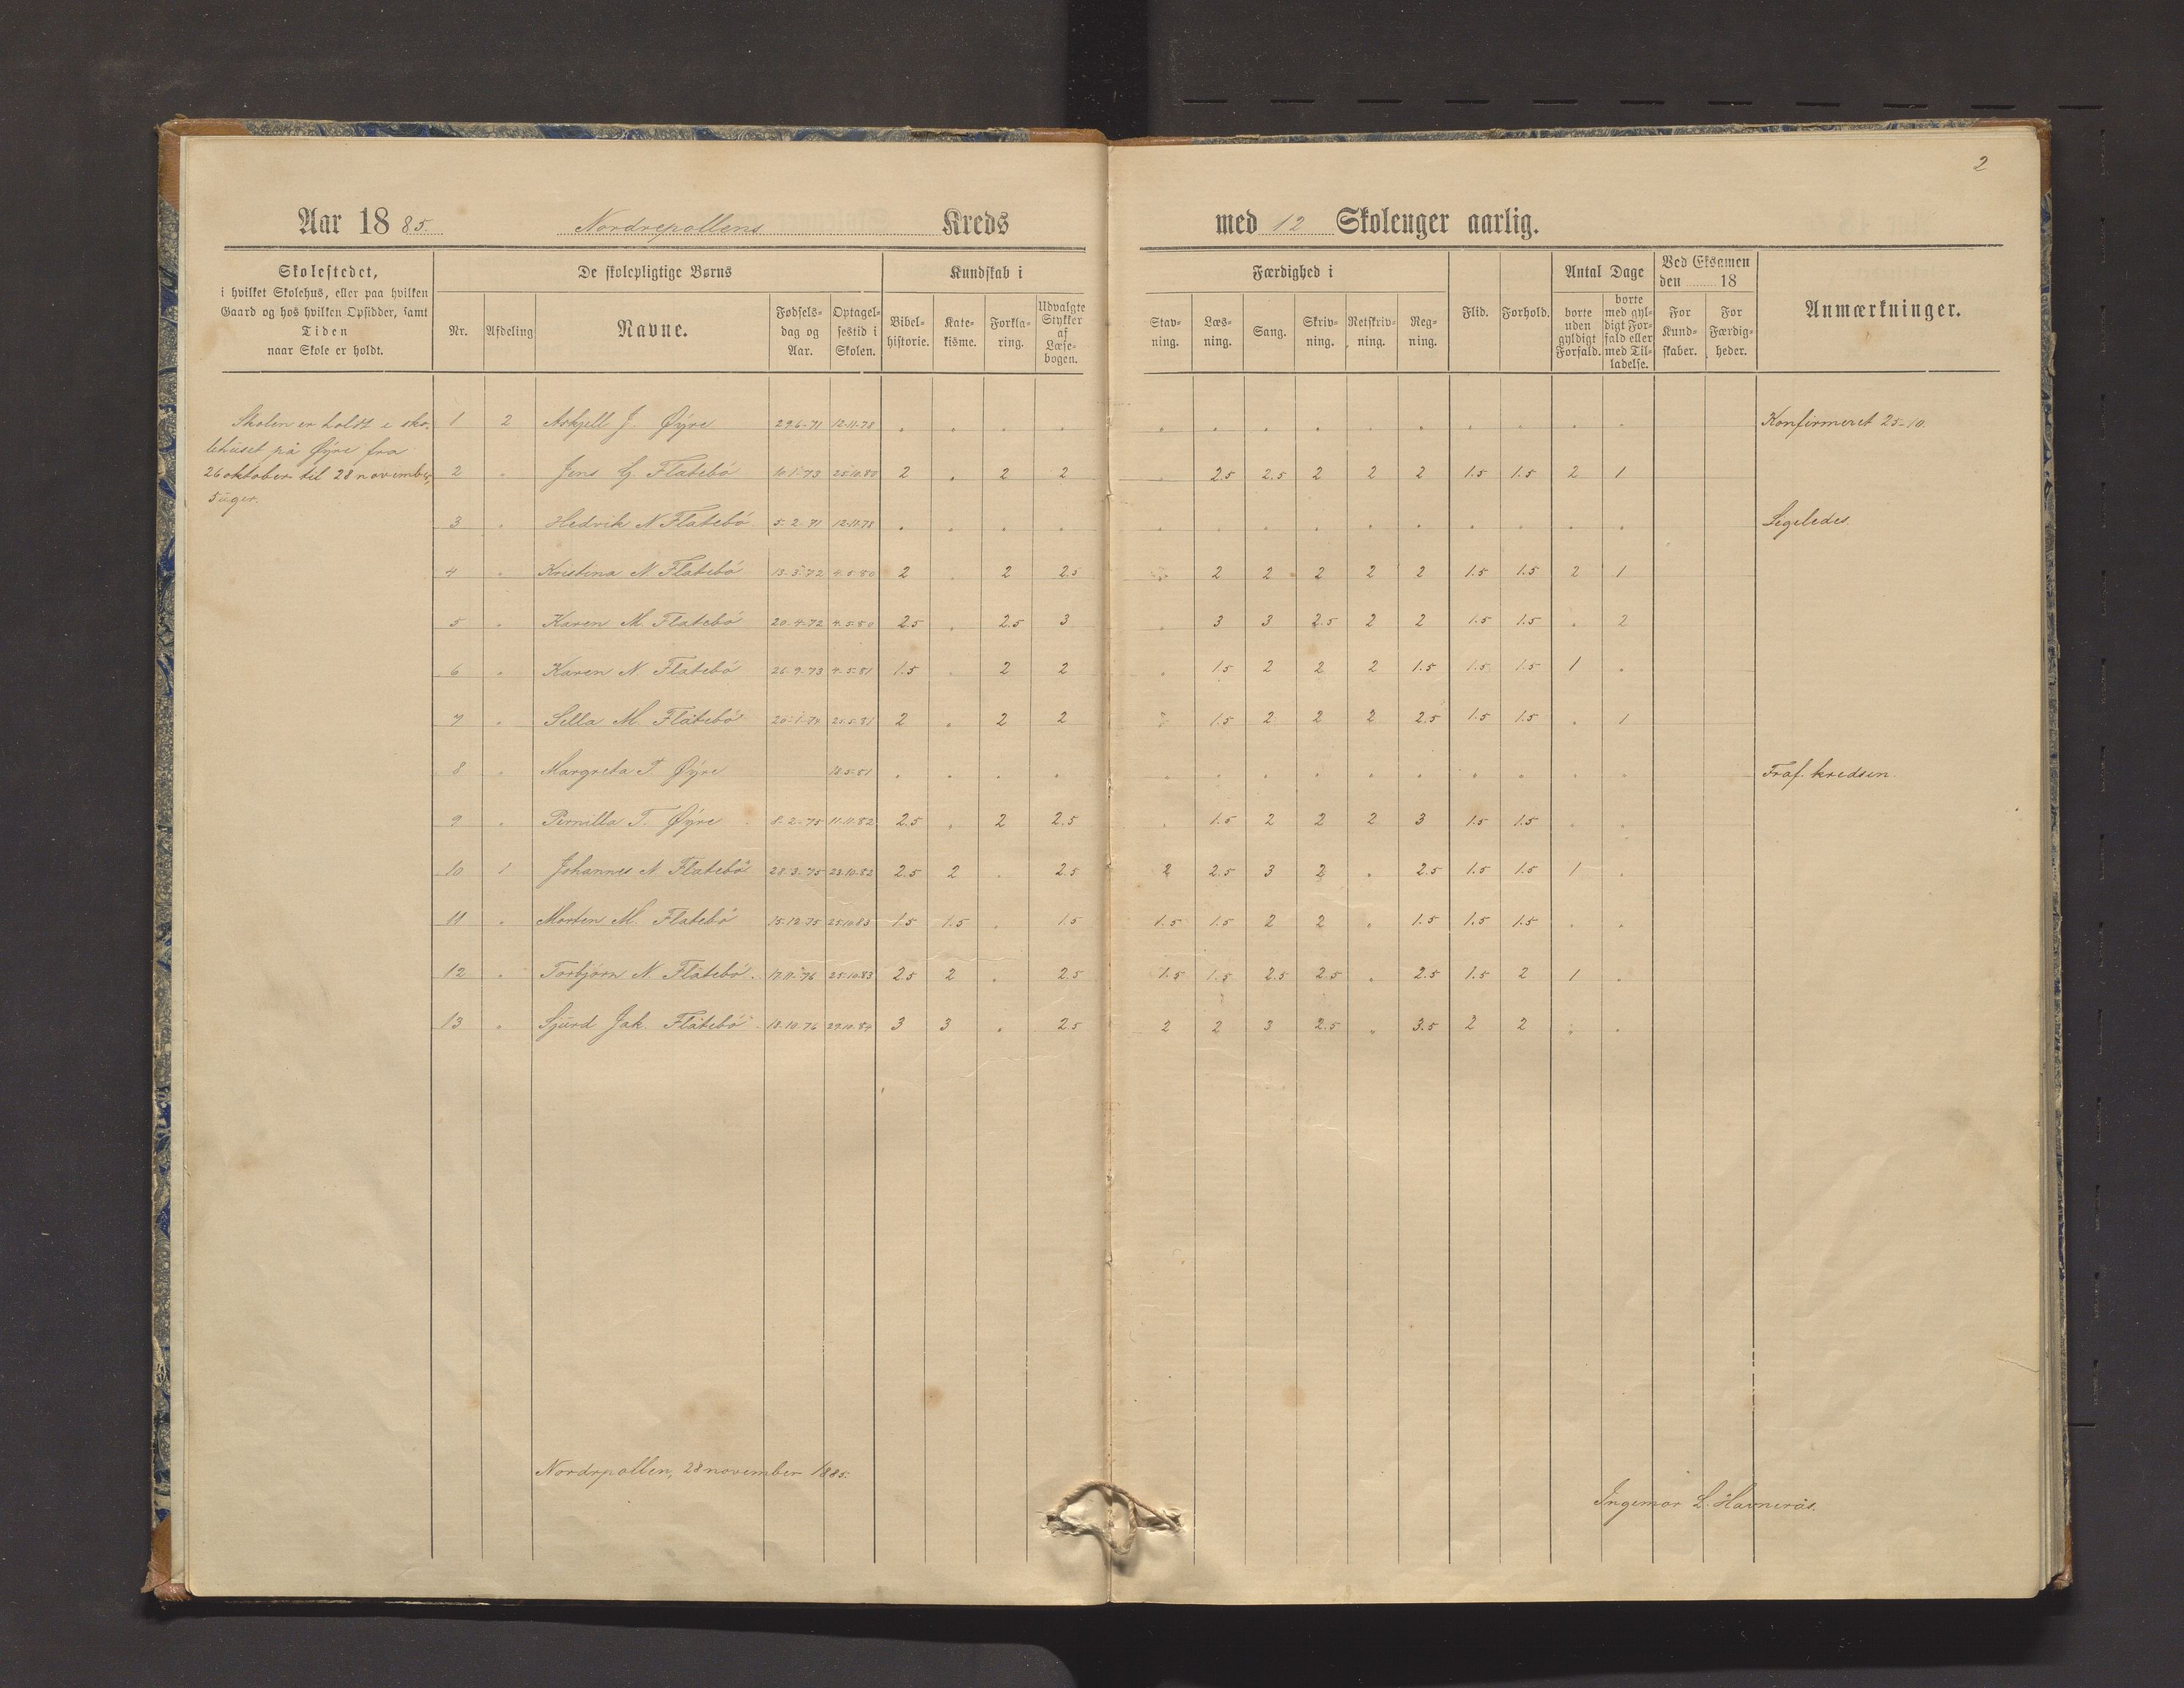 2
Aar 1885. Nordrepollens Kreds med 12 Skoleuger aarlig.
Skolestedet,
i hvilket Skolehus, eller paa hvilken
Gaard og hos hvilken Opsidder, samt
Tiden
naar Skole er holdt.
De skolepligtige Børns
Nr.
Afdeling
Navne.
Fødsels-
dag og
Aar.
Optagel-
sestid i
Skolen.
Kundskab i
Bibel-
historie.
Kate-
kisme.
Forkla-
ring.
Udvalgte
Stykker
af
Læse-
bogen.
Færdighed i
Stav-
ning.
Læs-
ning.
Sang.
Skriv-
ning.
Retskriv-
ning.
Reg-
ning.
Flid.
Forhold.
Antal Dage
borte
uden
gyldigt
Forfald.
borte
med gyl-
digt For-
fald eller
med Til-
ladelse.
Ved Eksamen
den ........ 18
For
Kund-
skaber.
For
Færdig-
heder.
Anmærkninger.
Skolen er holdt i sko-
lehuset på Øyre fra
26 oktober til 28 november,
5 uger.
1 2 Askjell J. Øyre 29.6-71 12-11-78 . . . . . . . . . . . . . . Konfirmeret 25-10.
2 " Jens G. Flatebø 10-1-73 25.10.80 2 . 2 2 . 2.5 2.5 2 2 2 1.5 1.5 2 1
3 " Hedvik N Flatebø 5-2-71 12-11-78 . . . . . . . . . . . . . . Ligeledes.
4 " Kristina N. Flatebø 13-3-72 4-5-80 2 . 2 2.5 . 2 2 2 2 2 1.5 1.5 2 1
5 " Karen M. Flatebø 20-4-72 4-5-80 2.5 . 2.5 3 . 3 3 2.5 2 2 1.5 1.5 . 2
6 " Karen N. Flatebø 26-9-73 4-5-81 1.5 . 2 2 . 1.5 2 2 2 1.5 1.5 1.5 1 .
7 " Sella M. Flatebø 20-1-74 25-5-81 2 . 2 2 . 1.5 2 2 2 2.5 1.5 1.5 . 1
8 " Margreta T. Øyre 10-5-81 . . . . . . . . . . . . . . Fraf. kredsen.
9 " Pernilla T. Øyre 8-2-75 11-11-82 2.5 . 2 2.5 . 1.5 2 2 2 3 1.5 1.5 . .
10 1 Johannes N. Flatebø 28-3-75 23.10.82 2.5 2 . 2.5 2 2.5 3 2 . 2.5 1.5 1.5 1 .
11 " Morten M. Flatebø 15-12-75 25.10.83 1.5 1.5 . 1.5 1.5 1.5 2 2 . 1.5 1.5 1.5 . .
12 " Torbjørn N. Flatebø 17-11-76 25.10.83 2.5 2 . 2.5 1.5 1.5 2.5 2.5 . 2.5 1.5 2 1 .
13 " Sjurd Jak. Flatebø 18-10-76 29.10.84 3 3 . 2.5 2 2 3 2.5 " 3.5 2 2 . .
Nordrpollen, 28 november 1885.
Ingemar L. Havnerås.